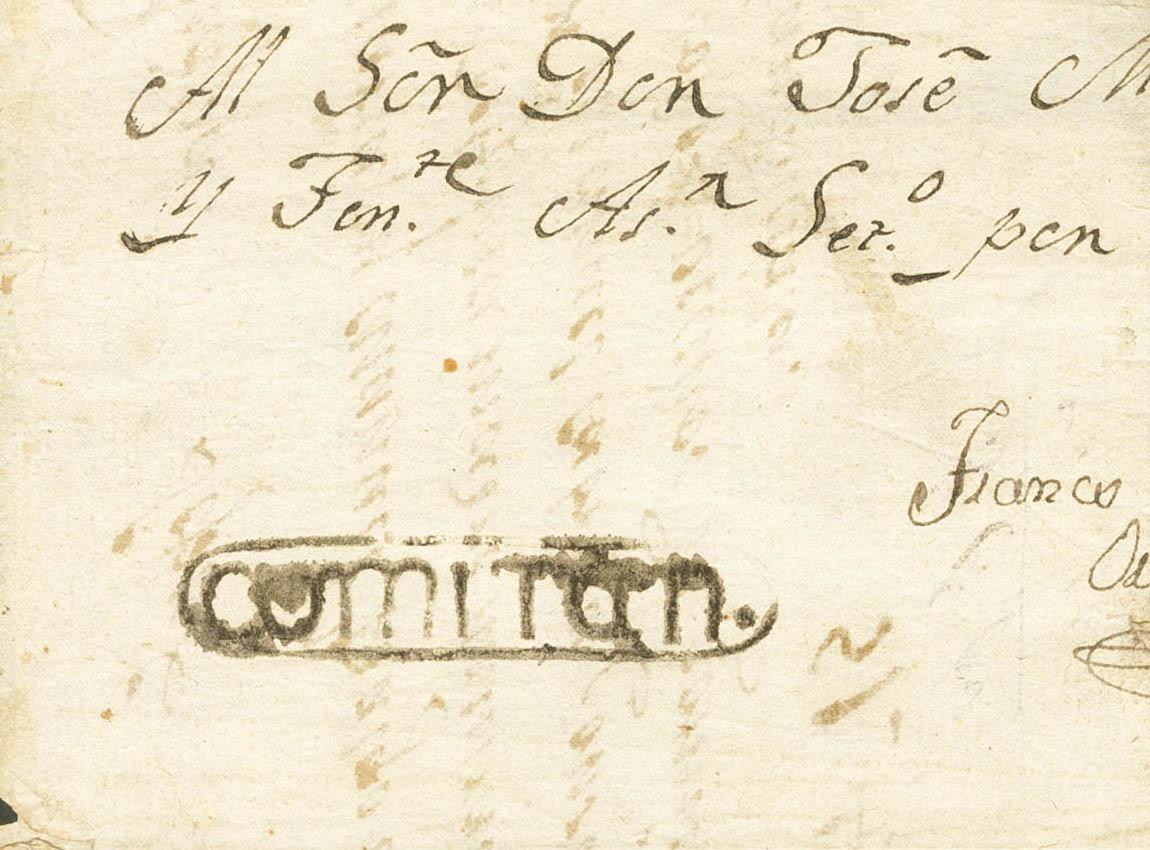 Al Sōr Don Josē M
y Ten.te As.n Set.o pon
Franco
comitan.